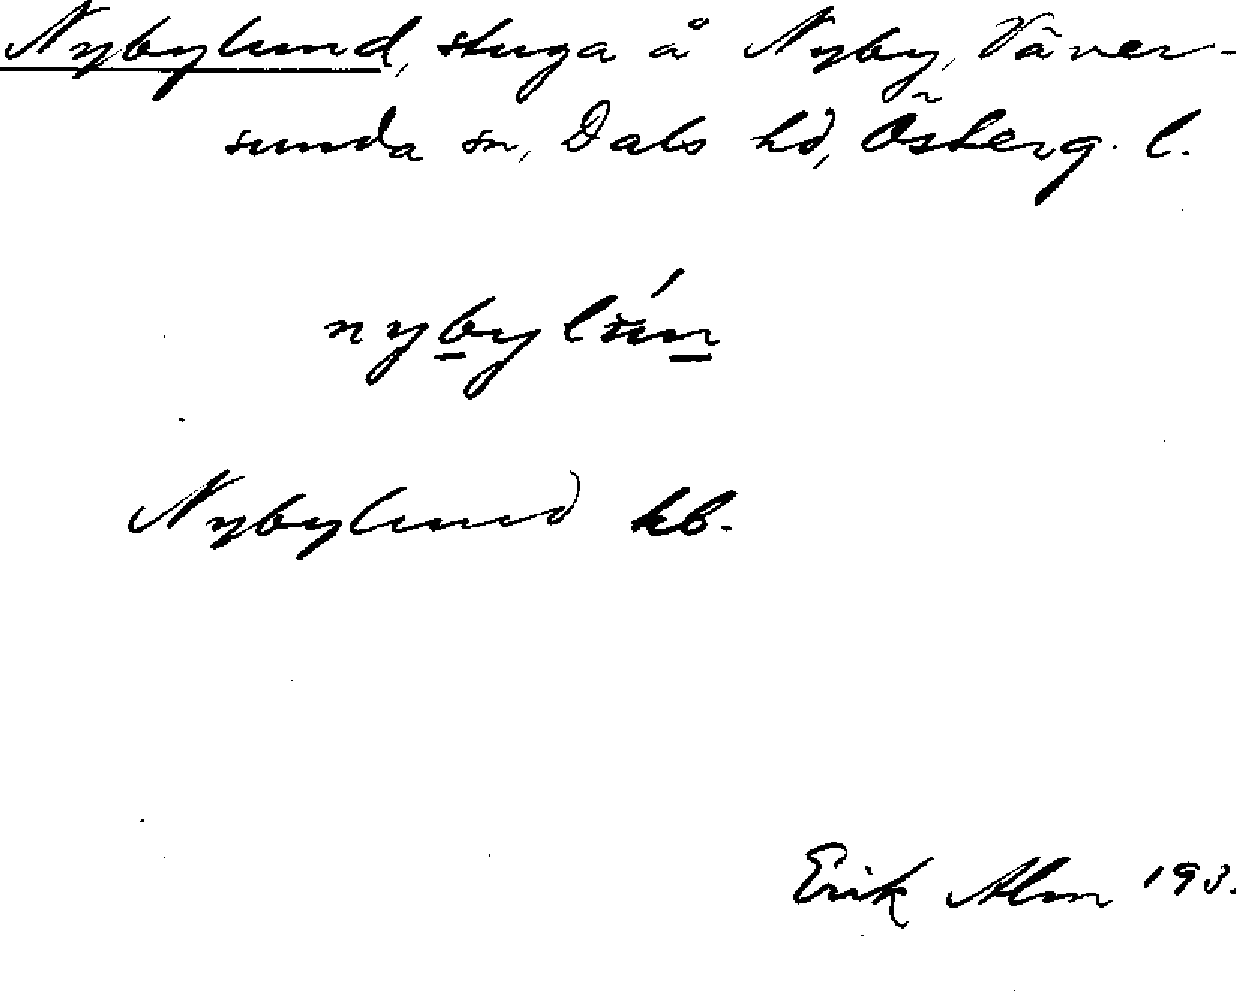 Nybylund, stuga å Nyby, Väver-
sunda sn, Dals hd, Österg. l.
nybylún
Nybylund kb.
Erik Alm 193.